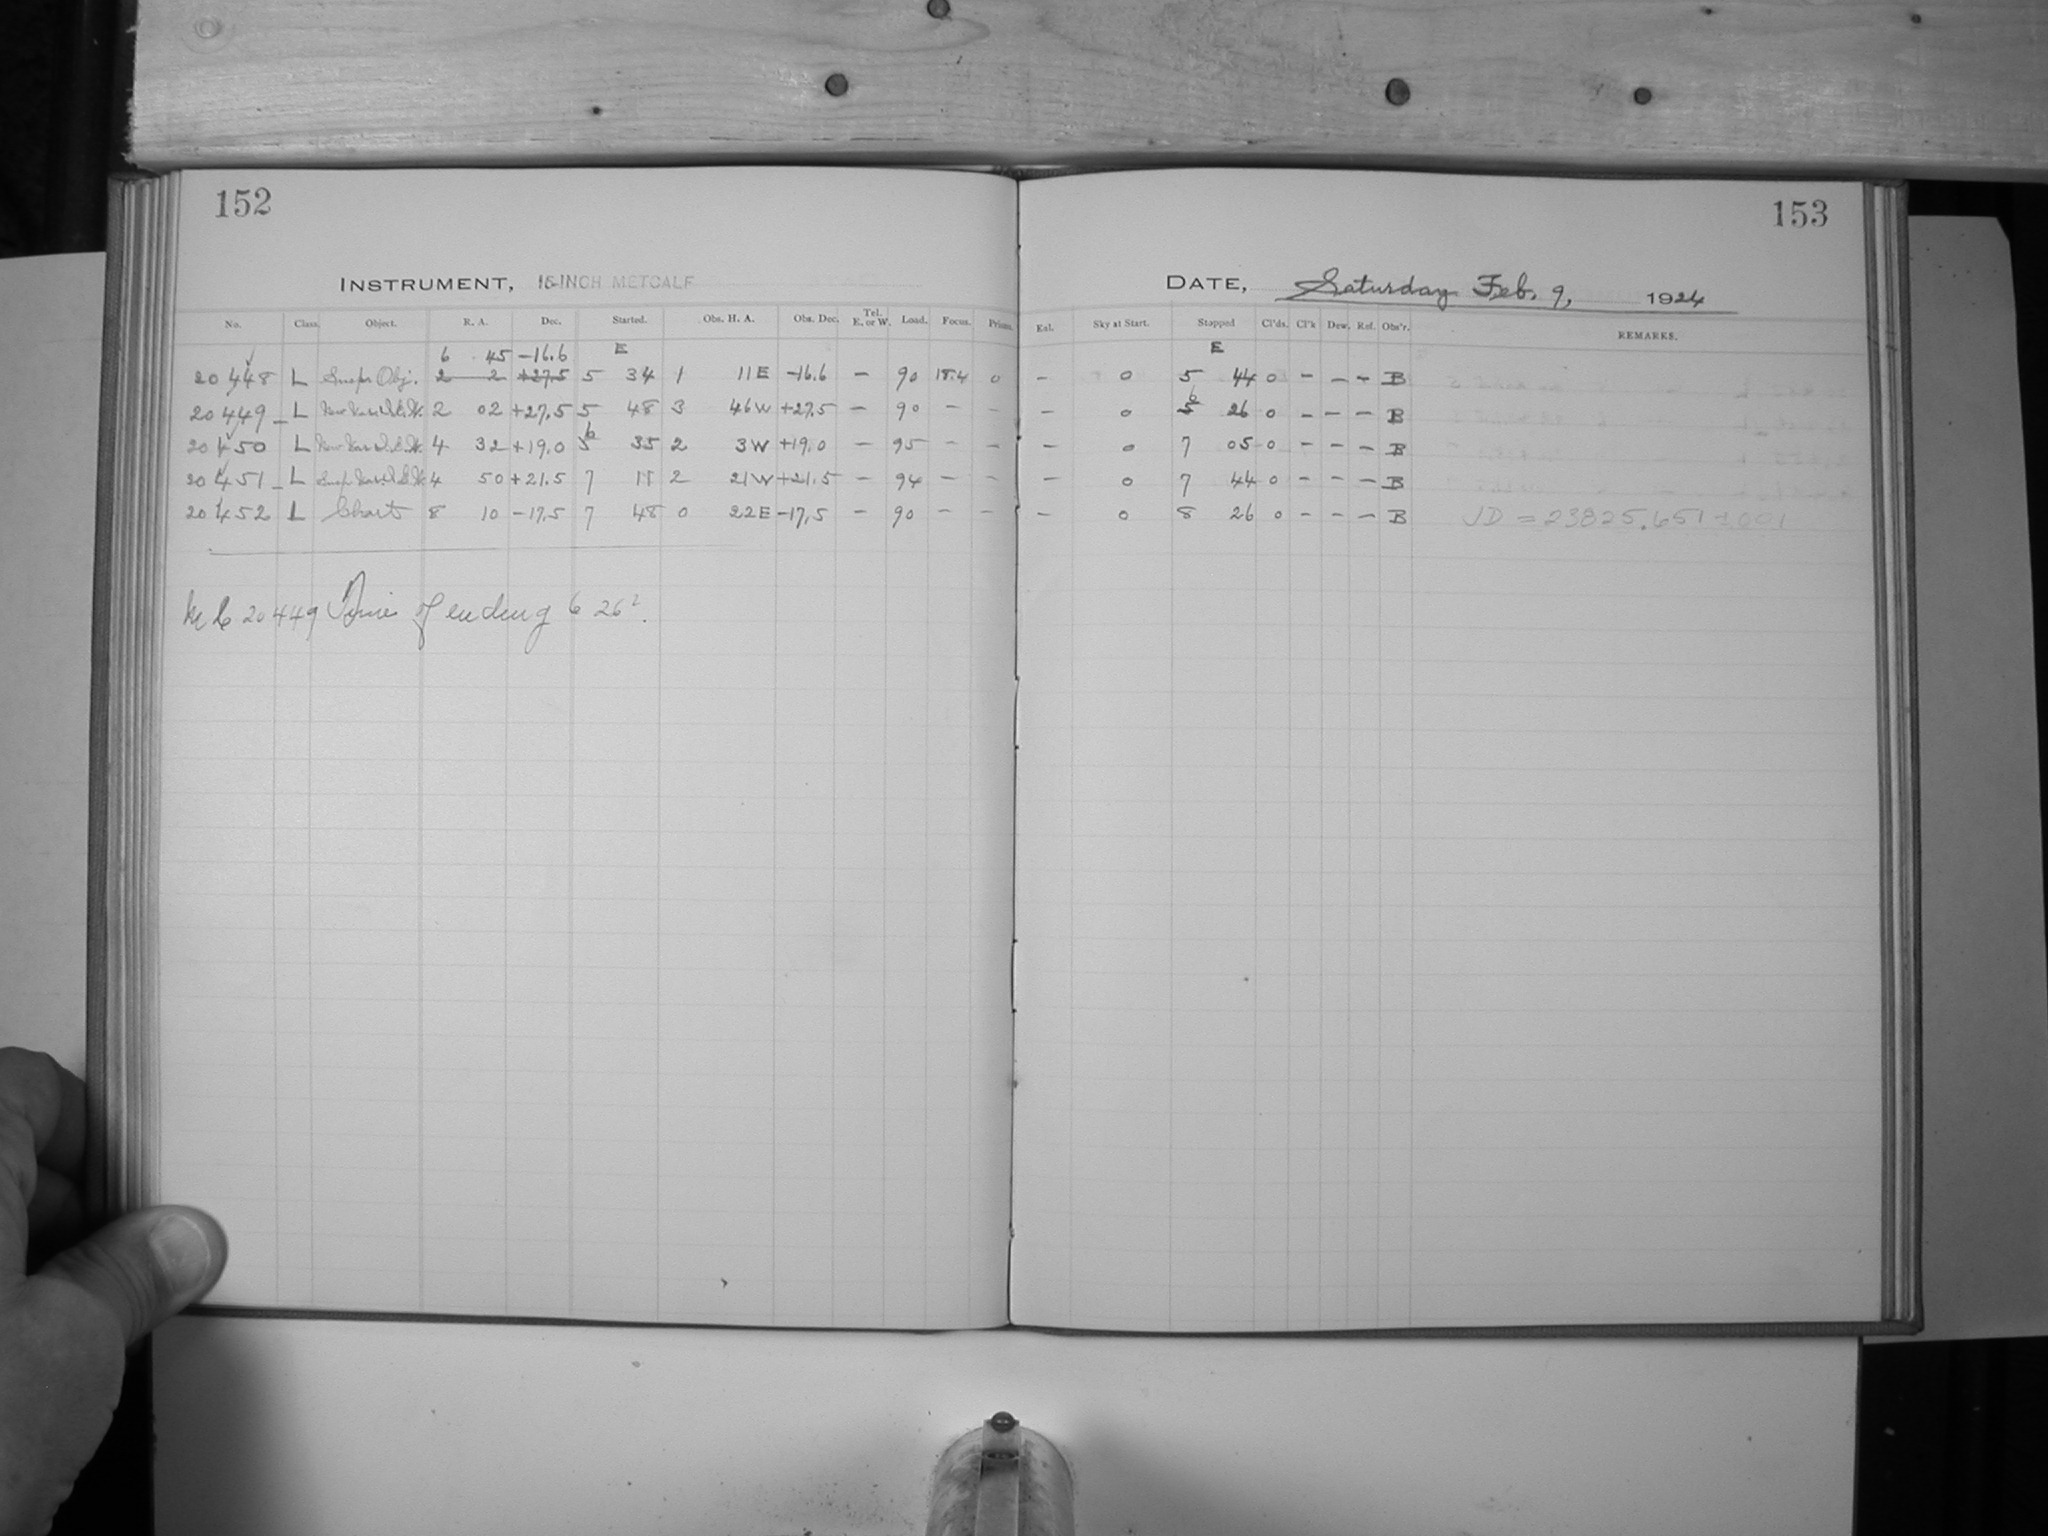 152
153
INSTRUMENT, 16-INCH METCALF
DATE, Saturday Feb. 9, 1924
No. Class. Object. R. A. Dec. Started. Obs. H. A. Obs. Dec. Tel. E. or W. Load. Focus. Prism. Exl. Sky at Start. Stopped Cl'ds. Cl'k Dew. Ref. Obs'r. REMARKS.
6 45 -16.6 E E
20 448 L Obj. 2 2 +27.5 5 34 1 11 E -16.6 - 90 18.4 0 - 0 5 44 0 - - - B
20 449 L 2 02 +27.5 5 48 3 46 W +27.5 - 90 - - - 0 6 26 0 - - - B
20 450 L 4 32 +19.0 6 35 2 3 W +19.0 - 95 - - - 0 7 05 0 - - - B
20 451 L 4 50 +21.5 7 11 2 21 W +21.5 - 94 - - - 0 7 44 0 - - - B
20 452 L Chart 8 10 -17.5 7 48 0 22 E -17.5 - 90 - - - 0 8 26 0 - - - B JD = 23825.651 ±.001
MC 20449 Time of ending 6 26?